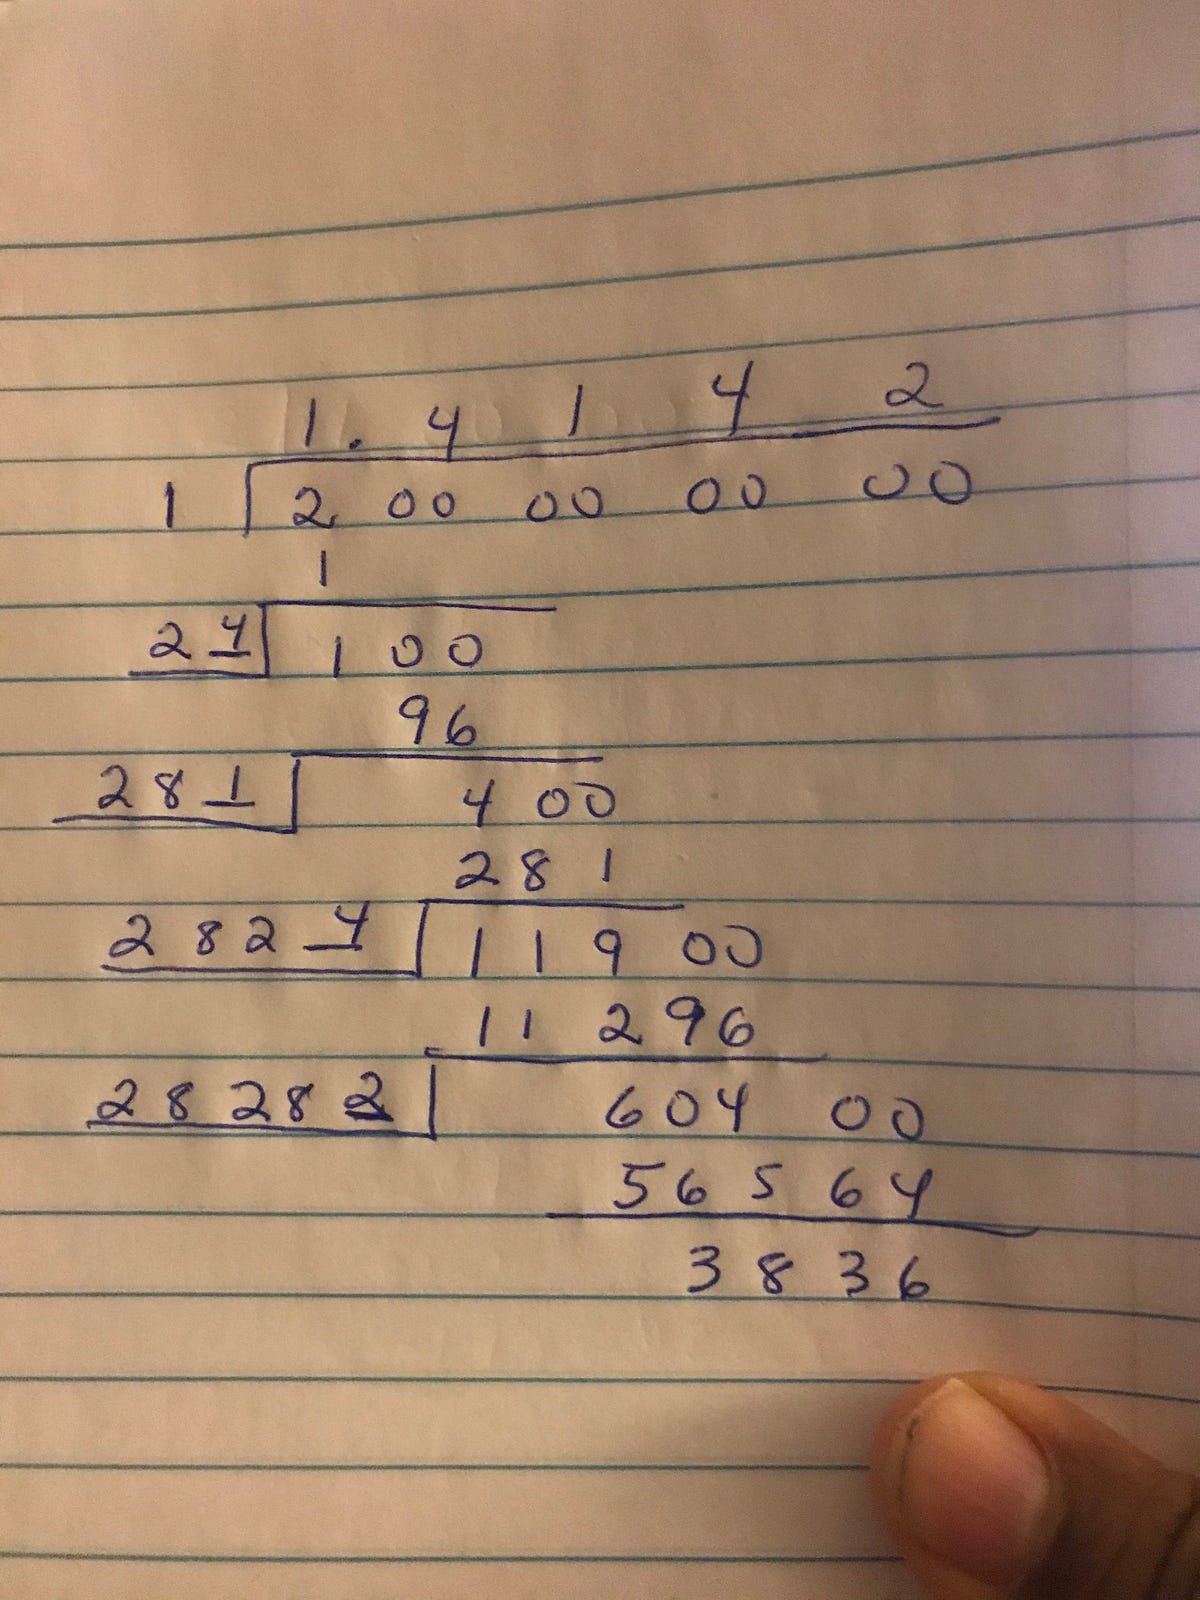 1. 4 1 4 2
1 2 00 00 00 00
1
24 100
96
281 400
281
2824 11900
11296
28282 60400
56564
3836